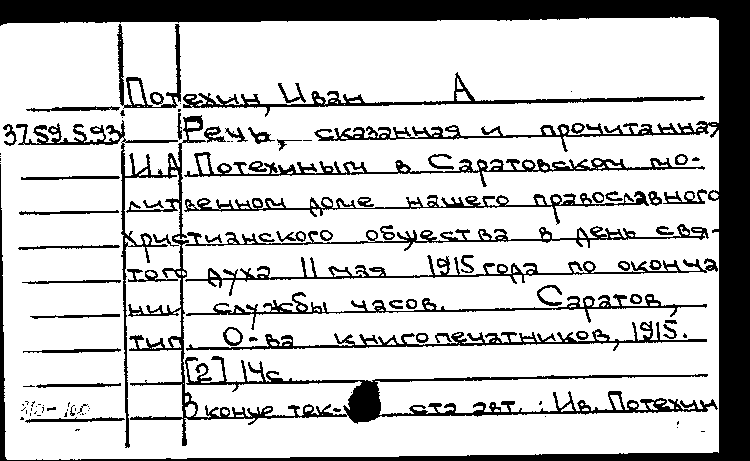 Потехин, Иван А
37.59.593 Речь, сказанная и прочитанная
И.А. Потехиным в Саратовском мо-
литвенном доме нашего православного
христианского общества в день свя-
того духа 11 мая 1915 года по оконча
нии службы часов. Саратов,
тип. О-ва книгопечатников, 1915.
[2], 14с.
В конце тек- ста авт.: Ив. Потехин